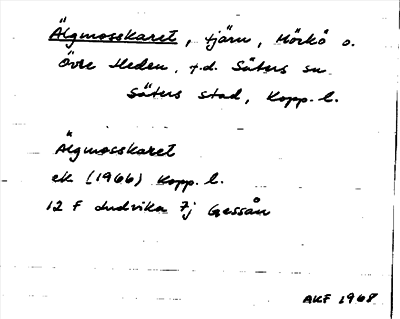 Älgmosskaret, tjärn, Mörkö o.
Övre Heden, f.d. Säters sn
Säters stad, Kopp. l.
Älgmosskaret
ek (1966) Kopp. l.
12 F Ludvika 7j Gessån
AKF 1968